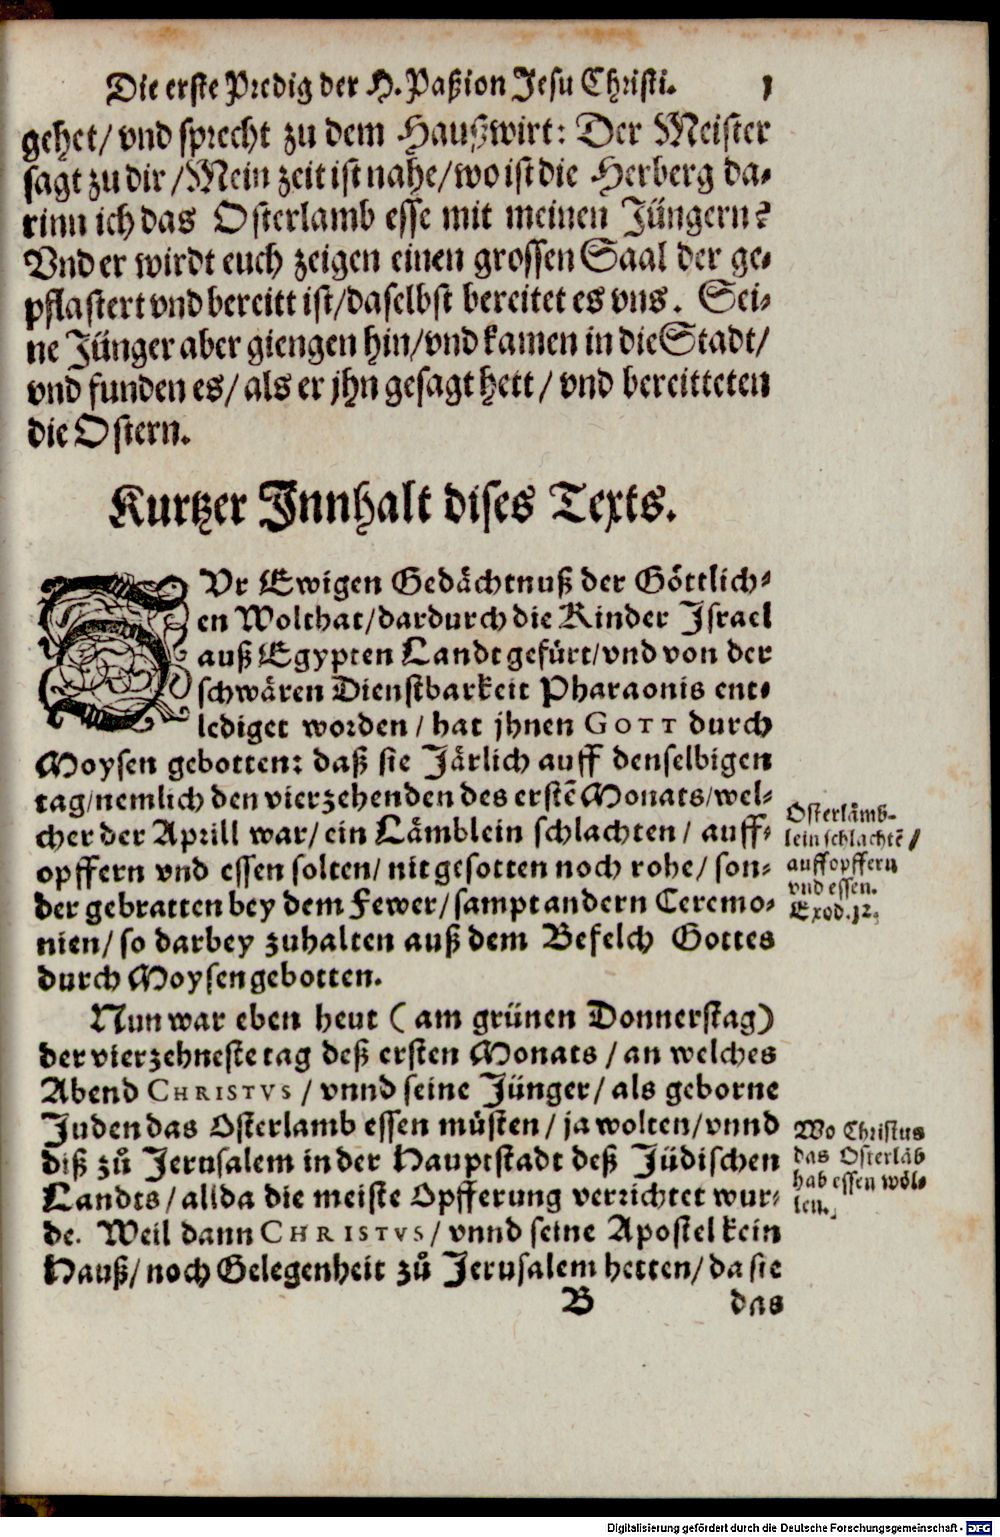 Die erste Predig der H. Paßion Jesu Christi. 1
gehet/ vnd sprecht zu dem Haußwirt: Der Meister
sagt zu dir/ Mein zeit ist nahe/ wo ist die Herberg da-
rinn ich das Osterlamb esse mit meinen Jüngern?
Vnd er wirdt euch zeigen einen grossen Saal der ge-
pflastert vnd bereitt ist/ daselbst bereitet es vns. Sei-
ne Jünger aber giengen hin/ vnd kamen in die Stadt/
vnd funden es/ als er jhn gesagt hett/ vnd bereitteten
die Ostern.
Kurtzer Innhalt dises Texts.
ZVr Ewigen Gedächtnuß der Göttlich-
en Wolthat/ dardurch die Kinder Israel
auß Egypten Landt gefürt/ vnd von der
schwären Dienstbarkeit Pharaonis ent-
lediget worden/ hat jhnen GOTT durch
Moysen gebotten: daß sie Järlich auff denselbigen
tag/ nemlich den vierzehenden des erstẽ Monats/ wel-
cher der Aprill war/ ein Lämblein schlachten/ auff-
opffern vnd essen solten/ nit gesotten noch rohe/ son-
der gebratten bey dem Fewer/ sampt andern Ceremo-
nien/ so darbey zuhalten auß dem Befelch Gottes
durch Moysen gebotten.
Osterlämb-
lein schlachtẽ/
auffopffern
vnd essen.
Exod. 12.
Nun war eben heut (am grünen Donnerstag)
der vierzehneste tag deß ersten Monats/ an welches
Abend CHRISTVS/ vnnd seine Jünger/ als geborne
Juden das Osterlamb essen müsten/ ja wolten/ vnnd
diß zů Jerusalem in der Hauptstadt deß Jüdischen
Landts/ allda die meiste Opfferung verrichtet wur-
de. Weil dann CHRISTVS/ vnnd seine Apostel kein
Hauß/ noch Gelegenheit zů Jerusalem hetten/ da sie
Wo Christus
das Osterlãb
hab essen wöl-
len.
B das
Digitalisierung gefördert durch die Deutsche Forschungsgemeinschaft - DFG